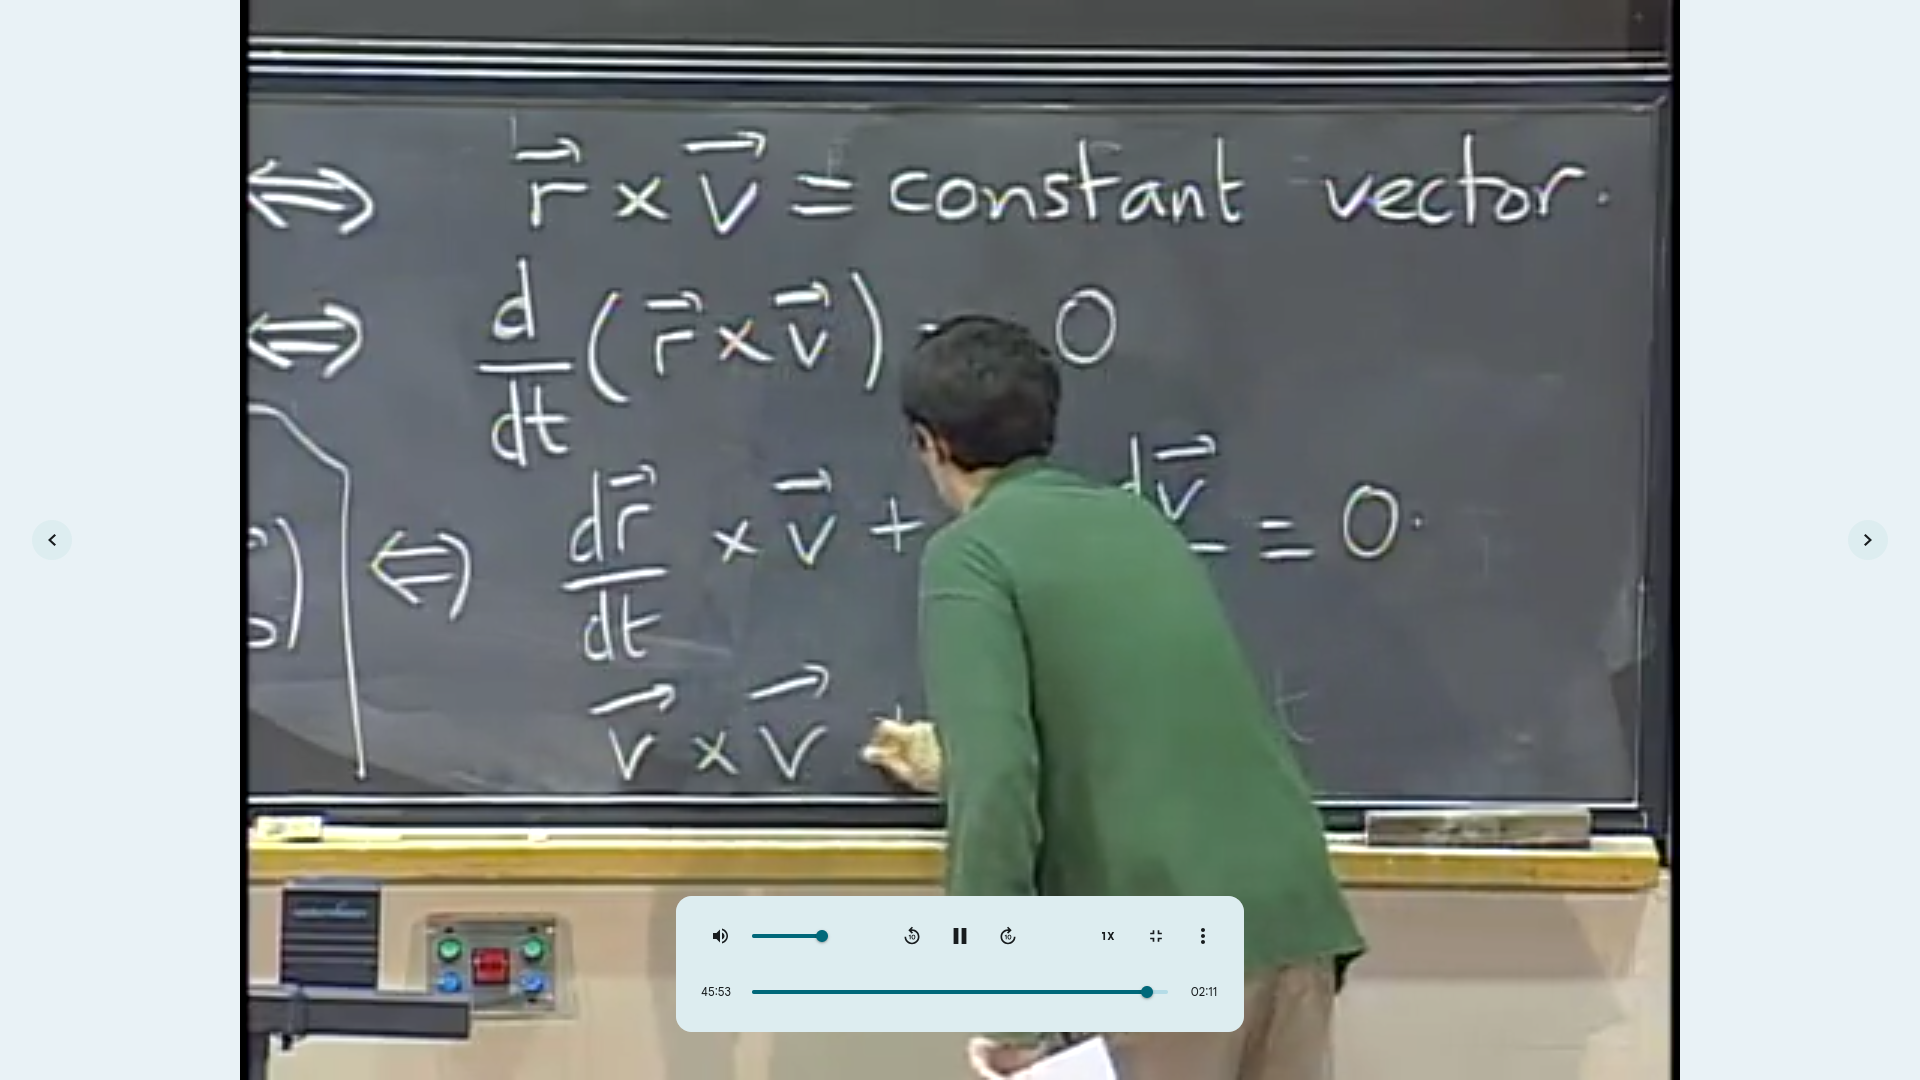 ⇔ r⃗ × v⃗ = constant vector.
⇔ d/dt (r⃗ × v⃗) = 0
⇔ dr⃗/dt × v⃗ + dv⃗ = 0.
v⃗ × v⃗ +
1X
45:53
02:11